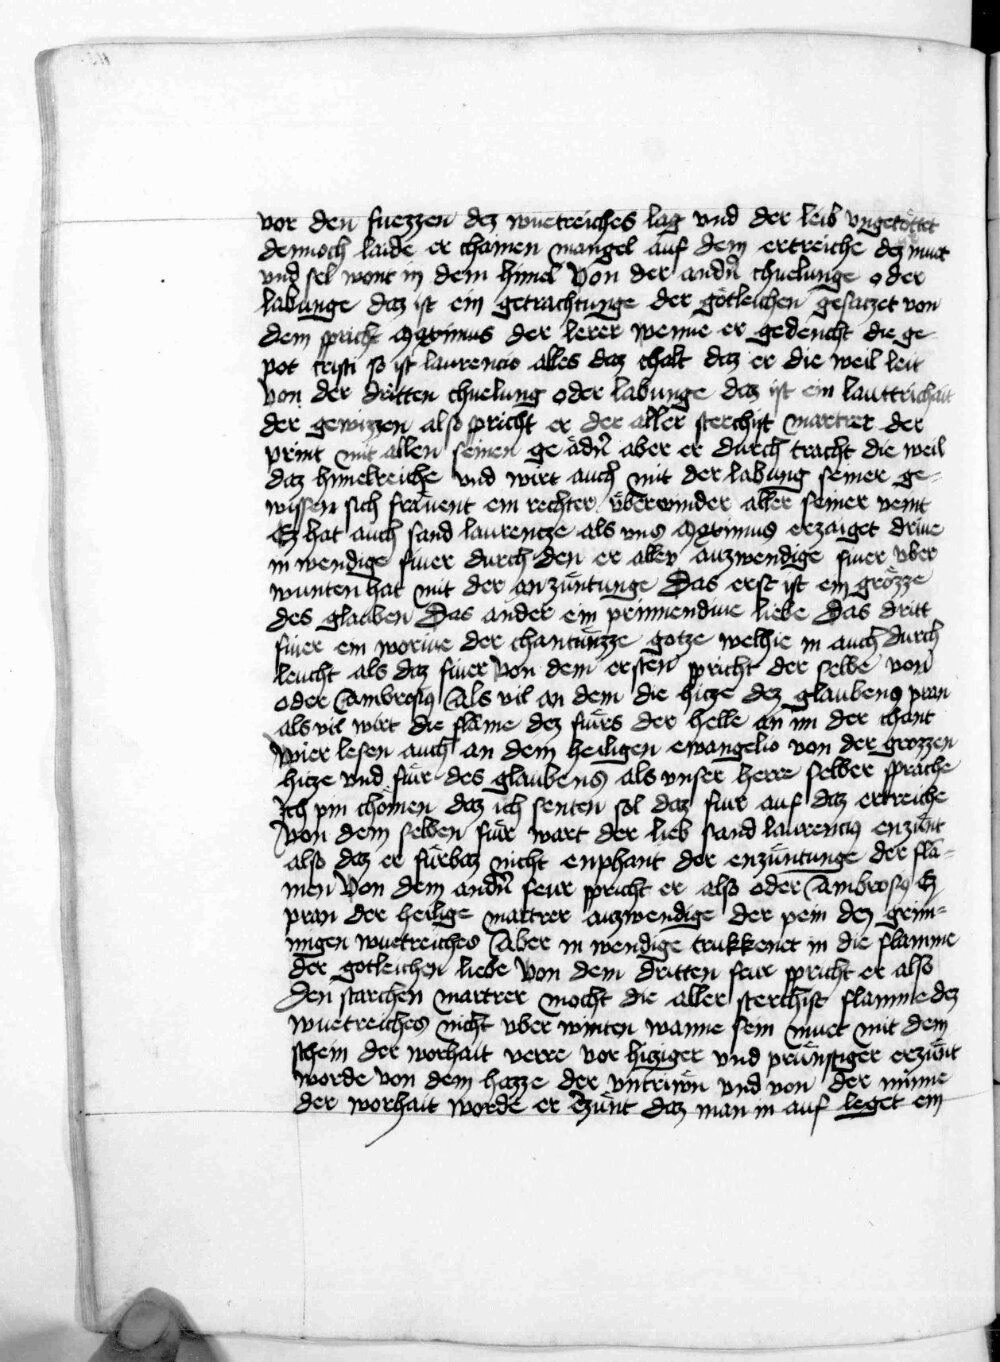 vor den fuezzen dez wuetreiches lag vnd der leib vngetöttet
dennoch laide er chainen mangel auf dem ertreiche dez muet
vnd sel wont in dem himel Von der andn̄ chuelunge oder
labunge daz ist ein getrachtunge der götleichen gesatzet von
dem spricht Maximus der lerer wenne er gedencht die ge
pot cristi so ist laurencio alles daz chalt daz er die weil leit
von der dritten chuelung oder labunge daz ist ein lauttrichait
der gewizzen also spricht er der aller sterchist martrer der
print mit allen seinen ge ädn̄ aber er durch tracht die weil
daz himelreiche vnd wirt auch mit der labung seiner ge-
wissen sich fräuent ein rechter vberwinder aller seiner veint
Ez hat auch sand laurencze als vns Maximus erzaiget driue
in wendige fiuer durch den er aller auzwendige fiuer vber
wunten hat mit der anzüntunge Das erst ist ein grözze
des glauben Das ander ein prinnendiue liebe Das dritt
fiuer ein woriue der chantnüzze gotze welhie in auch durch
leucht als daz fiuer Von dem ersten spricht der selbe von
oder Ambrosius Als vil an dem die hicze dez glaubens pran
als vil wirt die flame dez fiurs der helle an im der chant
Wier lesen auch an dem heiligen ewangelio von der grozzen
hitze vnd fiur des glaubens als vnser herre selber sprache
Ich pin chömen daz ich senten sol daz fiur auf daz ertreiche
Von dem selben fiur wart der lieb sand laurencius enzünt
also daz er fürbaz nicht enphant der enzüntunge der fla-
men Von dem andn̄ feur spricht er also oder Ambrosius Ez
pran der heilige martrer auzwendige der pein dez grim-
migen wuetreiches Aber in wendige trukkenet in die flamme
der gotleichen liebe Von dem dritten feur spricht er also
Den starchen martrer mocht die aller sterchist flamme dez
wuetreiches nicht vber winten wanne sein muet mit dem
schein der worhait verre vor hiziger vnd prünstiger erzünt
worde Von dem hazze der vntriwn vnd von der minne
der worhait worde er erzünt daz man in auf leget ein